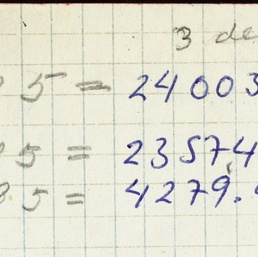 3 de
5 = 24003
5 = 23574
5 = 4279.